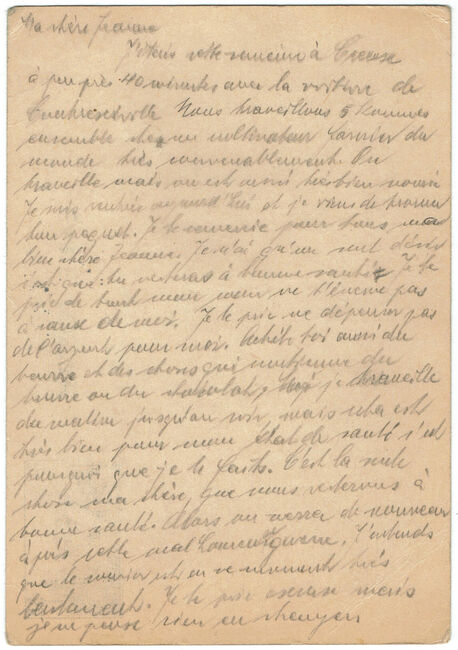 Ma chère Jeanne
J'étais cette semaine à
à peu près 40 minutes avec la voiture de
Nous travaillons 5 hommes
ensemble chez un cultivateur
monde très convenablement. On
travaille mais on est aussi très bien nourri
Je suis aujourd'hui et je viens de trouver
ton paquet. Je te remercie pour tous, mon
bien chère Jeanne. Je n'ai qu'un seul désir
c'est que tu resteras à bonne santé. Je te
prie de tout mon cœur ne t'énerve pas
à cause de moi. Je te prie ne dépenser pas
de l'argent pour moi. Achète toi aussi du
beurre et des choses qui du
beurre ou du chocolat, je travaille
du matin jusqu'au soir, mais cela est
très bien pour mon état de santé c'est
pourquoi que je le fais. C'est la seule
chose ma chère, que nous resterons à
bonne santé. Alors on verra de nouveau
après cette Guerre. J'entends
que le courrier est en ce moment très
Je te prie excuse mais
je ne pense rien en